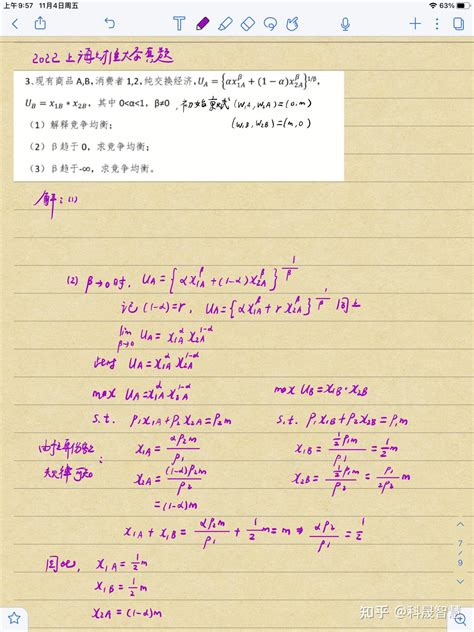 上午9:57 11月4日周五
63%
2022上海财经大学真题
3.现有商品 A,B,消费者 1,2,纯交换经济,U_A = {αx_{1A}^β + (1 − α)x_{2A}^β}^{1/β},
U_B = x_{1B} * x_{2B}, 其中 0<α<1, β≠0, (W_1A, W_2A) = (0, m)
(1) 解释竞争均衡; (W_1B, W_2B) = (m, 0)
(2) β趋于 0, 求竞争均衡;
(3) β趋于-∞, 求竞争均衡。
解:(1)
(2) β→0时, U_A = {αx_{1A}^β + (1-α)x_{2A}^β}^{1/β}
记(1-α)=r, U_A = {αx_{1A}^β + r x_{2A}^β}^{1/β} 同上
lim_{β→0} U_A = x_{1A}^α x_{2A}^{1-α}
此时 U_A = x_{1A}^α x_{2A}^{1-α}
max U_A = x_{1A}^α x_{2A}^{1-α} max U_B = x_{1B}·x_{2B}
s.t. P_1x_{1A}+P_2x_{2A}=P_2m s.t. P_1x_{1B}+P_2x_{2B}=P_1m
x_{1A} = αP_2m/P_1 x_{1B} = ½P_1m/P_1 = ½m
x_{2A} = (1-α)P_2m/P_2 x_{2B} = ½P_1m/P_2 = P_1/2P_2 m
= (1-α)m
x_{1A} + x_{1B} = αP_2m/P_1 + ½m = m ⇒ αP_2/P_1 = ½
因此, x_{1A} = ½m
x_{1B} = ½m
x_{2A} = (1-α)m
7
/
9
知乎 @科晟智慧